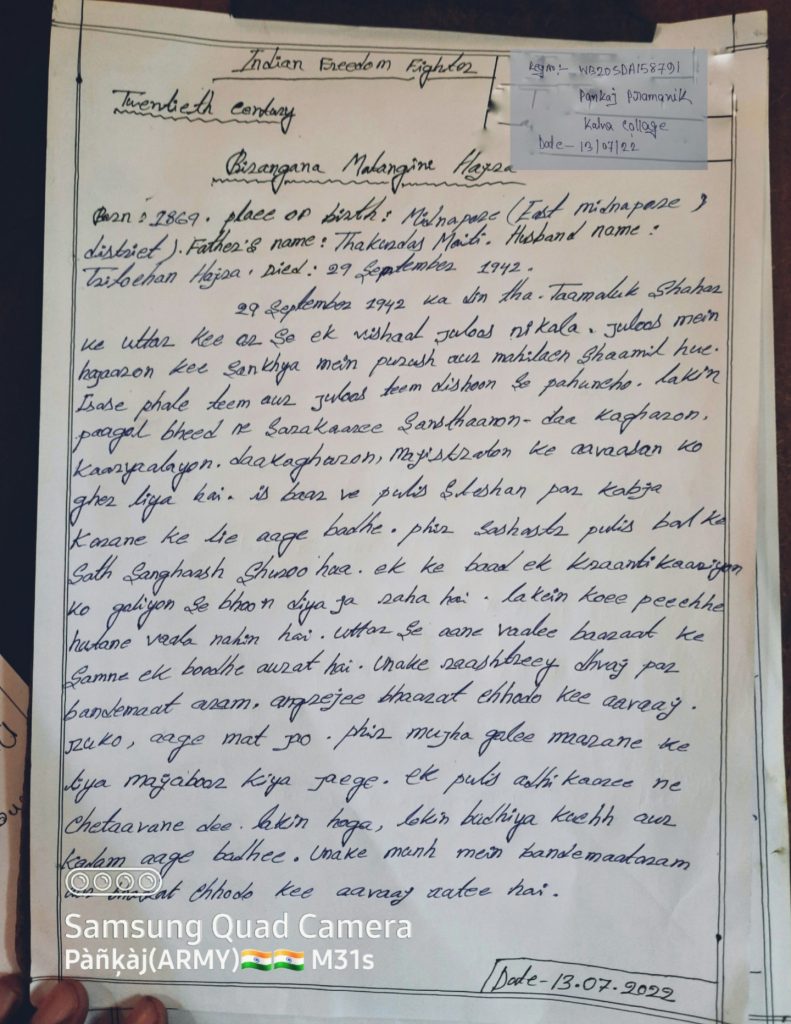 Indian Freedom Fighter
Reg no:- WB20SDA158791
Pankaj Pramanik
Kalva College
Date - 13/07/22
Twentieth century
Birangana Matangine Hajra
Born : 1869. place of birth : Midnapore (East midnapore )
district ). Father's name : Thakurdas Maiti. Husband name :
Trilochan Hajra. Died : 29 September 1942.
29 September 1942 ka din tha. Taamaluk Shahar
ke uttar kee or se ek vishaal juloos nikala. juloos mein
hajaaron kee sankhya mein purush aur mahilaen shaamil hue.
Isase phale teem aur juloos teem dishoon se pahuncho. lakin
paagal bheed ne sarakaaree sansthaanon- daa kagharon,
kaaryaalayon. daakagharon, majistraton ke aavaasan ko
gher liya hai. is baar ve pulis steshan par kabja
karane ke lie aage badhe. phir sashastr pulis bal ke
sath sangharsh shuroo hua. ek ke baad ek kraantikaariyon
ko goliyon se bhoon diya ja raha hai. lakein koee peechhe
hatane vaala nahin hai. uttar se aane vaalee baaraat ke
samne ek boodhe aurat hai. unake raashtreey dhvaj par
bandemaat aram. angrejee bhaarat chhodo kee aavaaj.
ruko, aage mat jao. phir mujha galee maarane ke
liya majaboor kiya jaege. ek pulis adhikaaree ne
chetaavane dee. lakin hoga, lekin budhiya kuchh aur
kadam aage badhee. unake munh mein bandemaataram
chhodo kee aavaaj aatee hai.
Samsung Quad Camera
Pàñķàj(ARMY)🇮🇳🇮🇳 M31s
Date - 13.07.2022